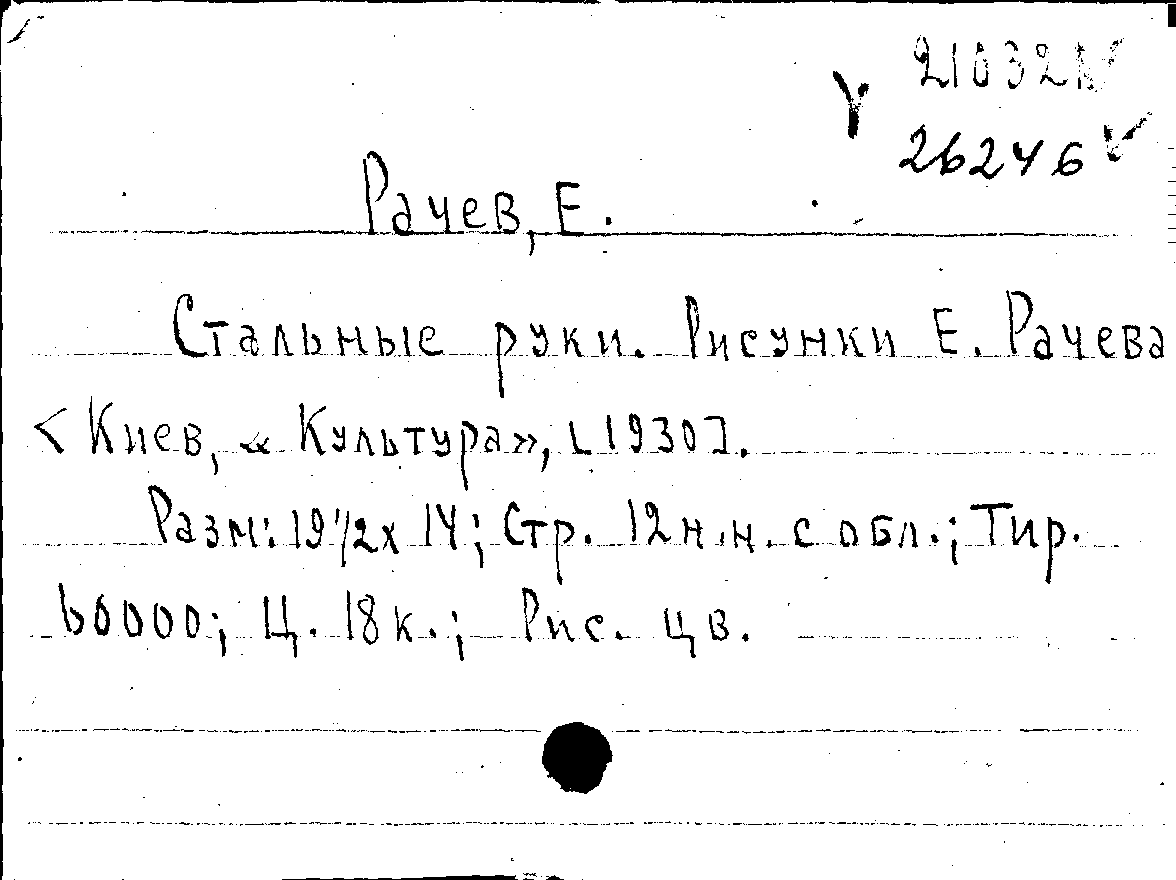 21032
Y
26246 ✓
Рачев, Е.
Стальные руки. Рисунки Е. Рачева
< Киев, « Культура», [1930].
Разм: 19 1/2 х 14; Стр. 12 н.н. с обл.; Тир.
60000; Ц. 18 к.; Рис. цв.